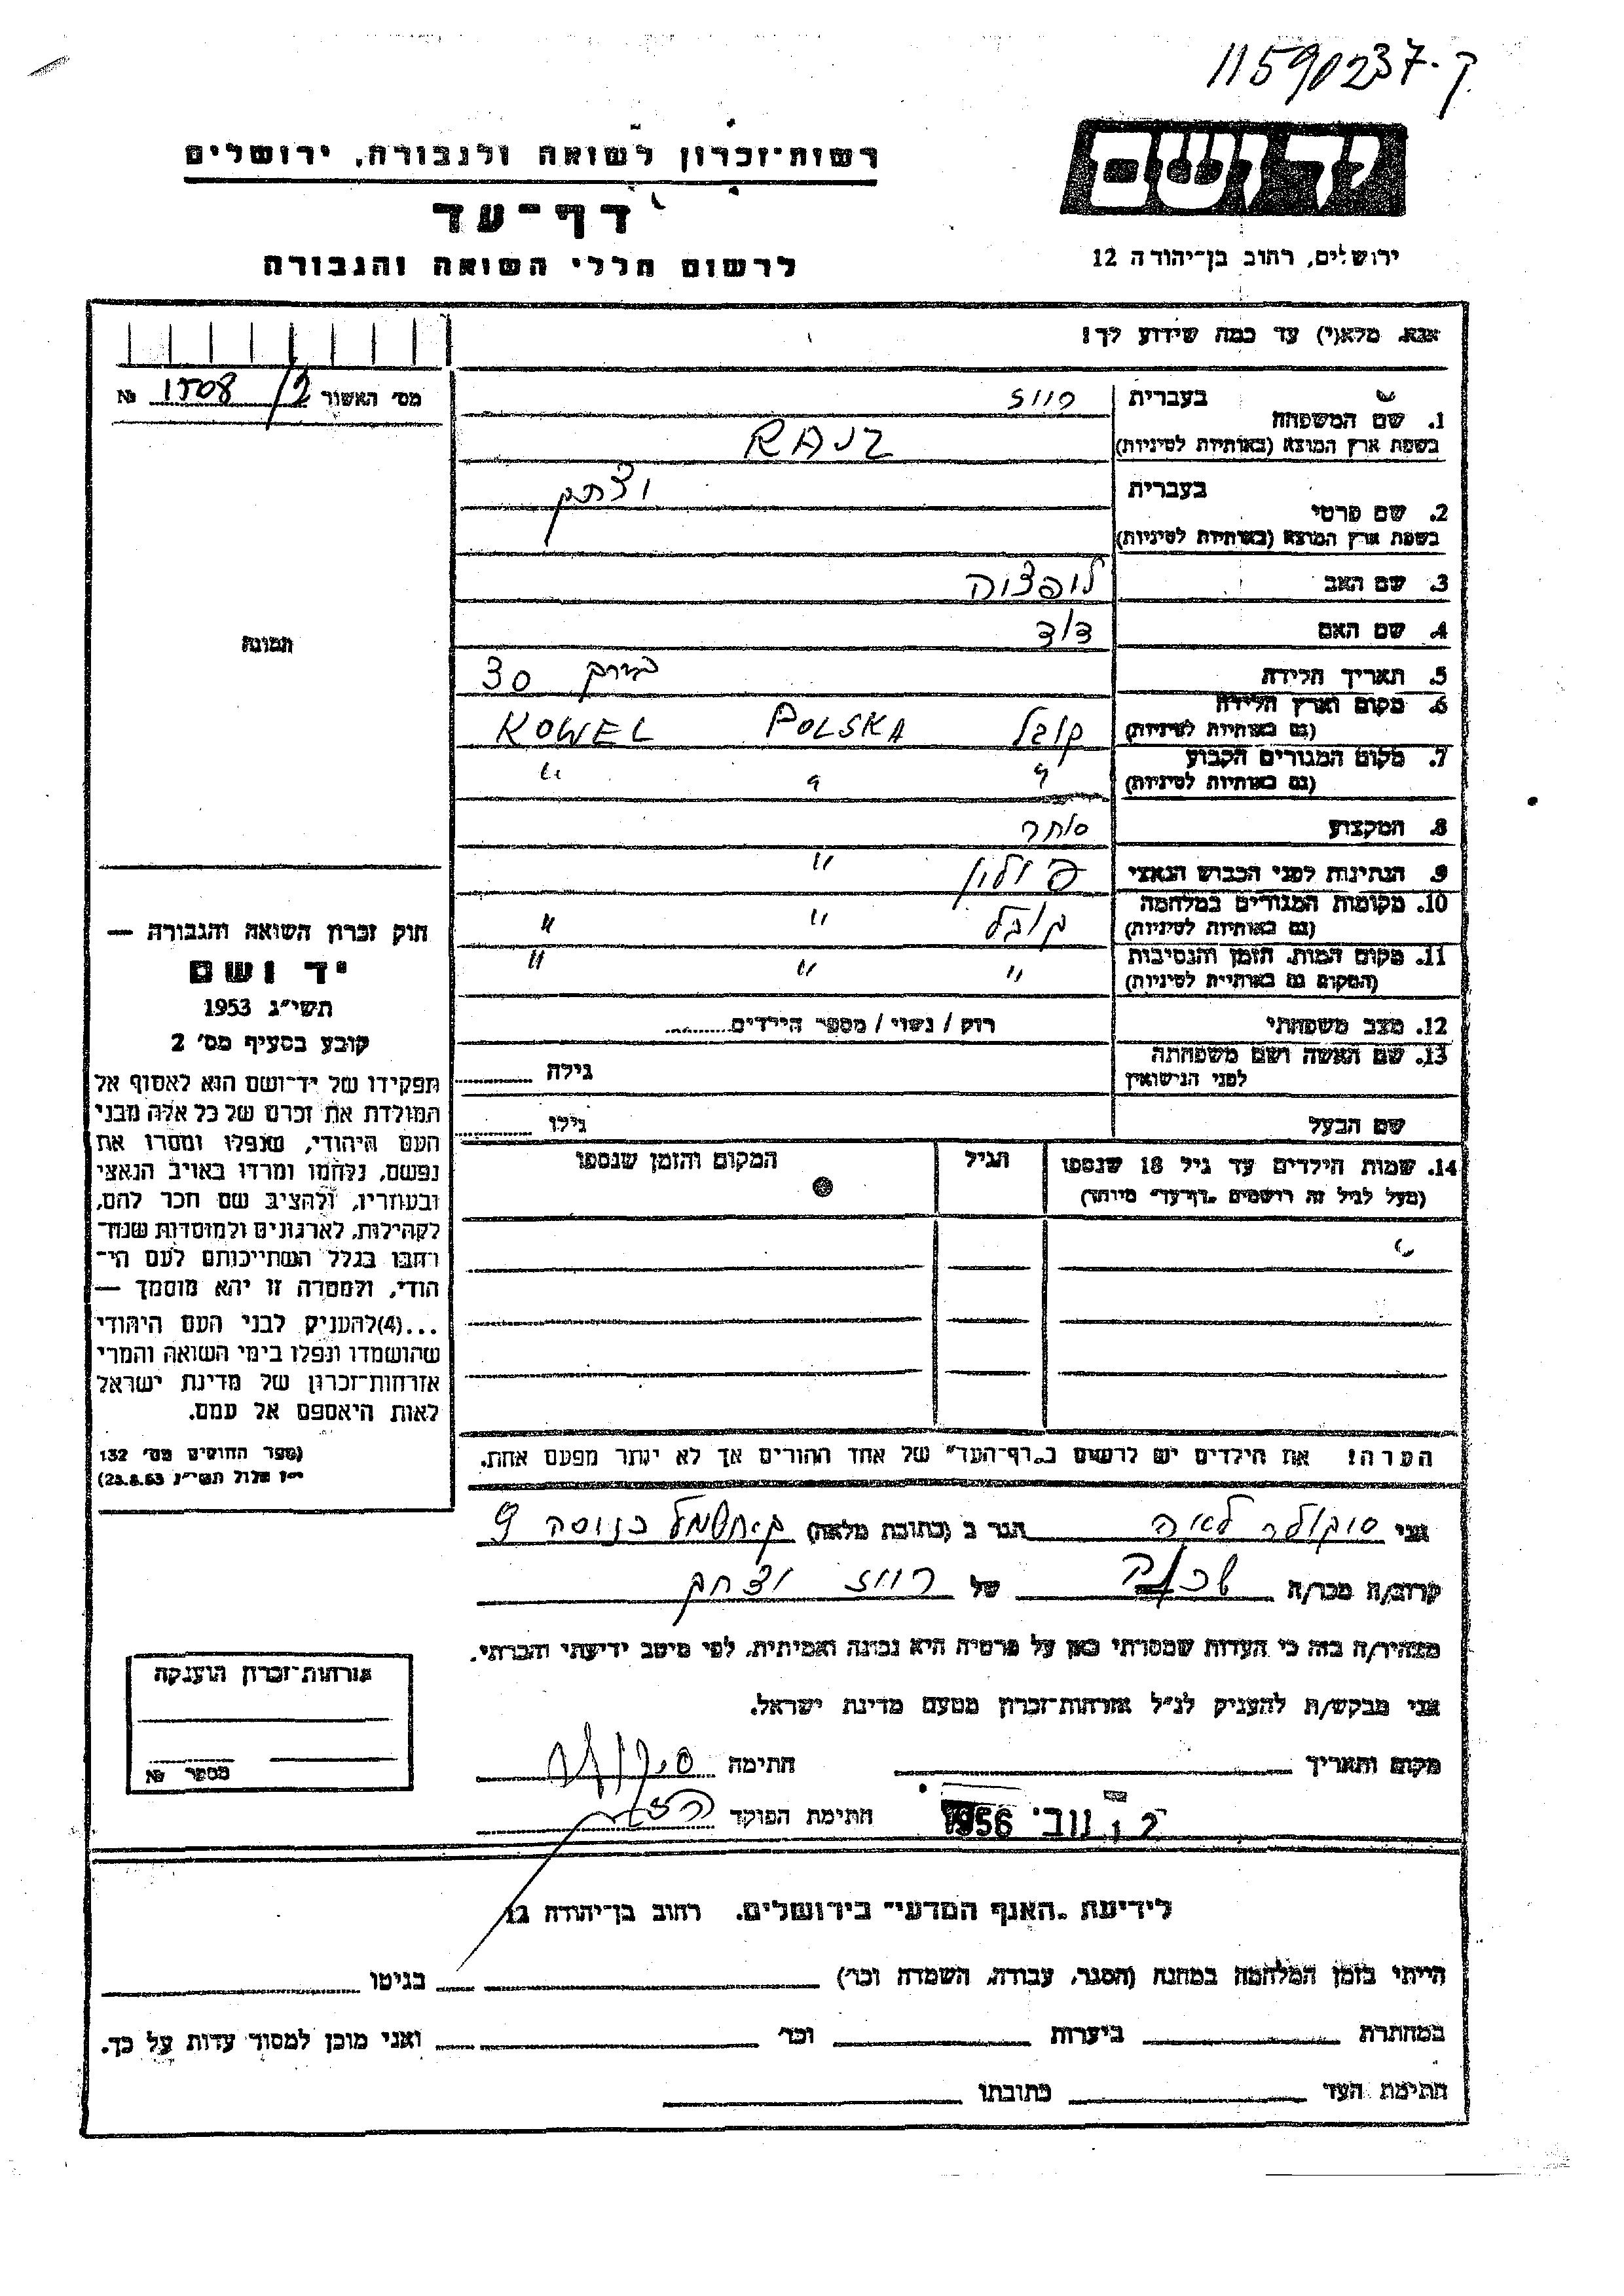 11590237-ק
רשות־זכרון לשואה ולגבורה, ירושלים
יד ושם
דף־עד
ירושלים, רחוב בן־יהודה 12
לרשום חללי השואה והגבורה
אנא, מלא(י) עד כמה שידוע לך!
מס׳ האשור 1508 №
1. שם המשפחה
בעברית רווז
בשפת ארץ המוצא (באותיות לטיניות) RAJZ
2. שם פרטי
בעברית יצחק
בשפת ארץ המוצא (באותיות לטיניות)
3. שם האב
4. שם האם
5. תאריך הלידה 30
6. מקום וארץ הלידה
(גם באותיות לטיניות) קובל POLSKA KOWEL
7. מקום המגורים הקבוע
(גם באותיות לטיניות) " " "
8. המקצוע סוחר
9. הנתינות לפני הכבוש הנאצי פולין "
10. מקומות המגורים במלחמה
(גם באותיות לטיניות) קובל " "
11. מקום המות, הזמן והנסיבות
(המקום גם באותיות לטיניות) " " "
12. מצב משפחתי רוק / נשוי / מספר הילדים
13. שם האשה ושם משפחתה
לפני הנישואין גילה
שם הבעל גילו
14. שמות הילדים עד גיל 18 שנספו
(מעל לגיל זה רושמים „דף־עד״ מיוחד)
הגיל
המקום והזמן שנספו
הערה! את הילדים יש לרשום ב„דף־העד״ של אחד ההורים אך לא יותר מפעם אחת.
תמונה
חוק זכרון השואה והגבורה —
יד ושם
תשי״ג 1953
קובע בסעיף מס׳ 2
תפקידו של יד־ושם הוא לאסוף אל
המולדת את זכרם של כל אלה מבני
העם היהודי, שנפלו ומסרו את
נפשם, נלחמו ומרדו באויב הנאצי
ובעוזריו, ולהציב שם וזכר להם,
לקהילות, לארגונים ולמוסדות שנח־
רבו בגלל השתייכותם לעם הי־
הודי, ולמטרה זו יהא מוסמך —
...(4)להעניק לבני העם היהודי
שהושמדו ונפלו בימי השואה והמרי
אזרחות־זכרון של מדינת ישראל
לאות היאספם אל עמם.
(ספר החוקים מס׳ 132
י״ז אלול תשי״ג 28.8.53)
אני סוקולר לאה הגר ב (כתובת מלאה)
קרוב/ה מכר/ה שכנה של רווז יצחק
מצהיר/ה בזה כי העדות שמסרתי כאן על פרטיה היא נכונה ואמיתית, לפי מיטב ידיעתי והכרתי.
אני מבקש/ת להעניק לנ״ל אזרחות־זכרון מטעם מדינת ישראל.
מקום ותאריך
חתימה
חתימת הפוקד
נוב׳ 1956
אזרחות־זכרון הוענקה
מספר №
לידיעת „האגף המדעי״ בירושלים. רחוב בן־יהודה 12
הייתי בזמן המלחמה במחנה (הסגר, עבודה, השמדה וכו׳) בגיטו
במחתרת ביערות וכו׳ ואני מוכן למסור עדות על כך.
חתימת העד כתובתו